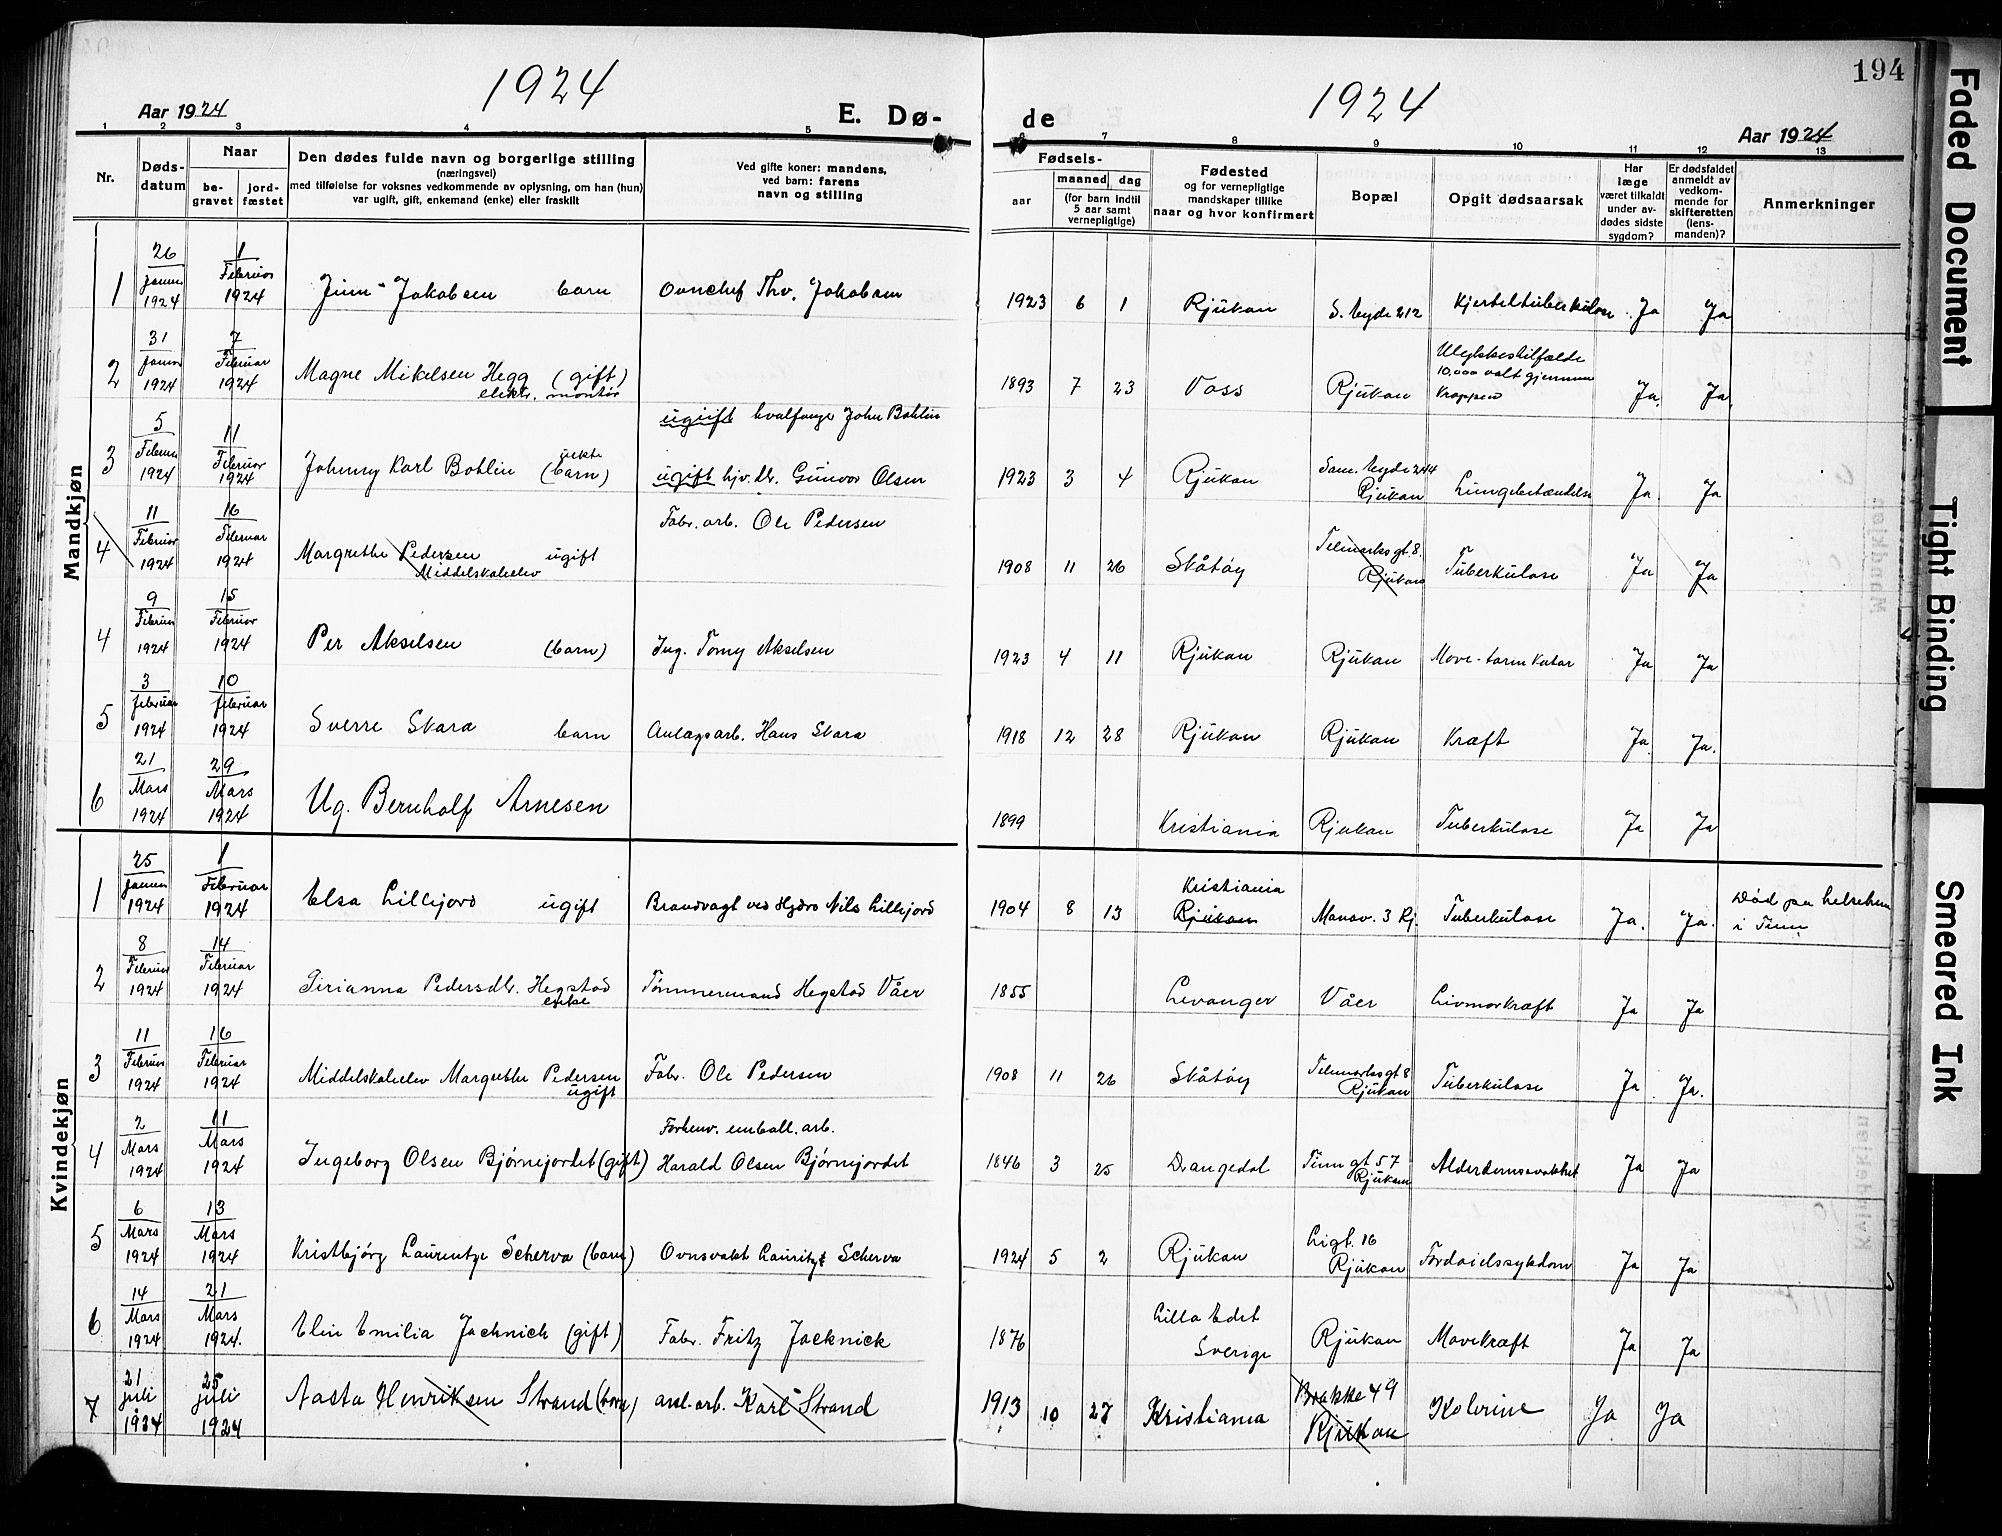 194
1924
1924
Aar 1924
E. Dø-
de
Aar 1924
1 2 3 4 5 6 7 8 9 10 11 12 13
Nr.
Døds-
datum
Naar
be-
gravet
jord-
fæstet
Den dødes fulde navn og borgerlige stilling
(næringsvei)
med tilføielse for voksnes vedkommende av oplysning, om han (hun)
var ugift, gift, enkemand (enke) eller fraskilt
Ved gifte koner: mandens,
ved barn: farens
navn og stilling
Fødsels-
aar
maaned
dag
(for barn indtil
5 aar samt
vernepligtige)
Fødested
og for vernepligtige
mandskaper tillike
naar og hvor konfirmert
Bopæl
Opgit dødsaarsak
Har
læge
været tilkaldt
under av-
dødes sidste
sygdom?
Er dødsfaldet
anmeldt av
vedkom-
mende for
skifteretten
(lens-
manden)?
Anmerkninger
Mandkjøn
1 26 Januar 1924 1 Februar 1924 Jim Jakobsen barn Ovnchef Thv. Jakobsen 1923 6 1 Rjukan S. byde 212 Kjerteltuberkulose Ja Ja
2 31 Januar 1924 7 Februar 1924 Magne Mikelsen Hegg (gift)
elektr. montør
1893 7 23 Voss Rjukan
Ulykkestilfælde
10,000 volt gjennem
Kroppen
Ja. Ja.
ugift hvalfanger John Bohlin
3 5 Februar 1924 11 Februar 1924 Johnny Karl Bohlin uekte (barn)
ugift hjv. dr. Gunvor Olsen
1923 3 4 Rjukan Sam. byde 244
Rjukan
Lungebetændelse Ja. Ja
4 11 Februar 1924 16 Februar 1924 Margrethe Pedersen ugift
Middelskoleelev
Fabr. arb. Ole Pedersen
1908 11 26 Skåtøy Telemarksgt. 8.
Rjukan
Tuberkulose Ja Ja
4 9 Februar 1924 15 Februar 1924 Per Akselsen (barn) Ing. Tomy Akselsen 1923 4 11 Rjukan Rjukan Mave-tarm Katar Ja Ja
5 3 februar 1924 10 februar 1924 Sverre Skara barn Anlægsarb. Hans Skara 1918 12 28 Rjukan Rjukan Kræft Ja. Ja.
6 21 Mars 1924 29 Mars 1924 Ug. Bernholf Arnesen 1899 Kristiania Rjukan Tuberkulose Ja Ja
Kvindekjøn
1 25 Januar 1924 1 Februar 1924 Elsa Lillejord ugift Brandvagt ved Hydro Nils Lillejord 1904 8 13 Kristiania
Rjukan
Manav. 3 Rj. Tuberkulose Ja. Ja. Død paa
i Tinn
2 8 Februar 1924 14 Februar 1924 Pedersdtr. Hegstad
enke
Tømmermand Hegstad Våer 1855 Levanger Våer Livmorkræft Ja Ja
3 11 Februar 1924 16 Februar 1924 Middelskoleelev Margrethe Pedersen
ugift
Fabr. Ole Pedersen 1908 11 26 Skåtøy Telemarksgt 8
Rjukan
Tuberkulose Ja Ja.
4 2 Mars 1924 11 Mars 1924 Ingeborg Olsen Bjørnejordet (gift)
Forhenv. emball. arb.
Harald Olsen Bjørnejordet
1846 3 25 Drangedal Tinn gt 57
Rjukan
Alderdomssvakhet Ja Ja
5 6 Mars 1924 13 Mars 1924 Kristbjørg Laurentze Scherva (barn) Ovnsvakt Lauritz Scherva 1924 5 2 Rjukan Ligt. 16
Rjukan
Fordøielssykdom Ja Ja
6 14 Mars 1924 21 Mars 1924. Elin Emilia Jachnick (gift) Fabr. Fritz Jacknick 1876 Lilla Edet
Sverige
Rjukan Mavekræft Ja Ja
7 21 juli 1924 25 juli 1924 Aasta Henriksen Strand (barn) anl.-arb. Karl Strand 1913 10 27 Kristiania Brakke 49
Rjukan
Kolerine Ja Ja
Faded Document
Tight Binding
Smeared Ink